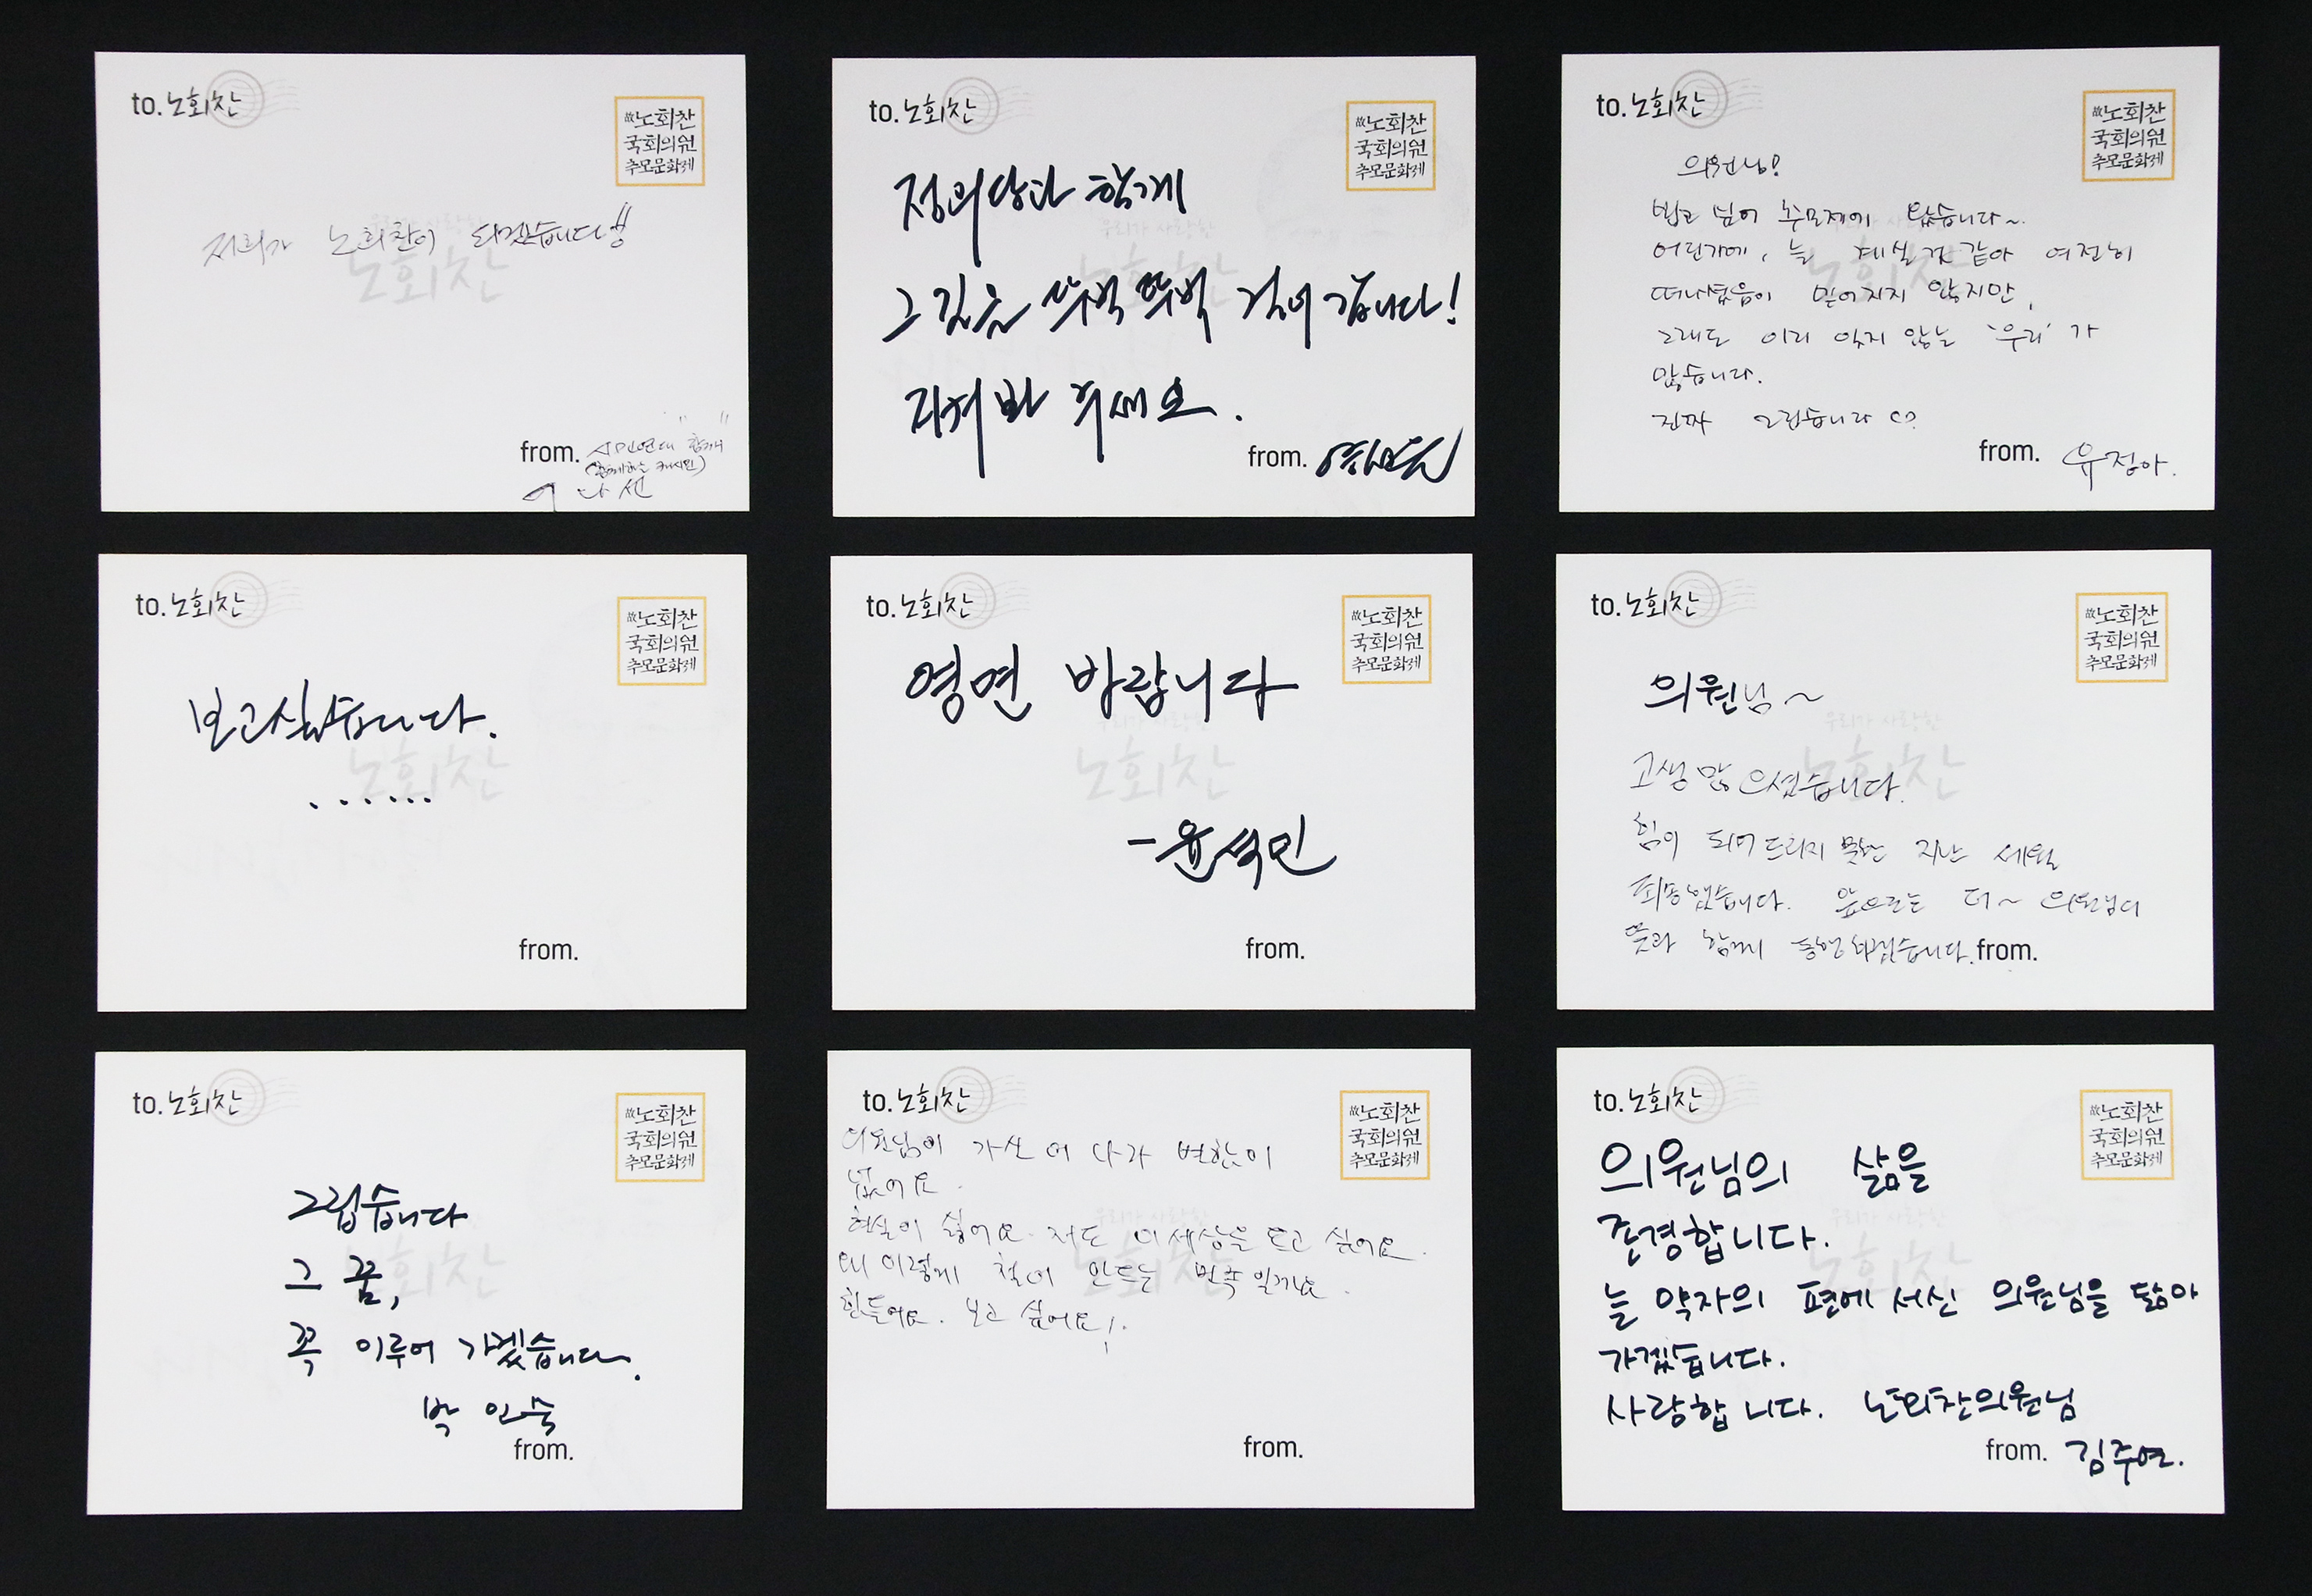 to. 노회찬
故노회찬
국회의원
추모문화제
우리가 사랑한
노회찬
저희가 노회찬이 되겠습니다!!
from. 시민연대 "함께"
to. 노회찬
故노회찬
국회의원
추모문화제
우리가 사랑한
노회찬
정의당과 함께
그 길을 뚜벅뚜벅 걸어 갑니다!
지켜봐 주세요.
from.
to. 노회찬
故노회찬
국회의원
추모문화제
의원님!
어딘가에, 늘 계실 것 같아 여전히
떠나셨음이 믿어지지 않지만,
그래도 이리 잊지 않는 '우리'가
많습니다.
진짜 그립습니다
from. 유정아.
to. 노회찬
故노회찬
국회의원
추모문화제
노회찬
보고싶습니다.
.......
from.
to. 노회찬
故노회찬
국회의원
추모문화제
영면 바랍니다
우리가 사랑한
노회찬
-윤석민
from.
to. 노회찬
故노회찬
국회의원
추모문화제
의원님~
우리가 사랑한
노회찬
고생 많으셨습니다.
힘이 되어드리지 못한 지난 세월
죄송했습니다. 앞으로는 더~ 의원님의
뜻과 함께 동행하겠습니다.
from.
to. 노회찬
故노회찬
국회의원
추모문화제
노회찬
그립습니다
그 꿈,
꼭 이루어 가겠습니다.
박인숙
from.
to. 노회찬
故노회찬
국회의원
추모문화제
의원님이 가신 어 나라 변함이
없어요.
우리가 사랑한
노회찬
현실이 싫어요. 저도 이 세상을 뜨고 싶어요.
왜 이렇게 철이 안드는 민족일까요.
힘들어요. 보고 싶어요!.
from.
to. 노회찬
故노회찬
국회의원
추모문화제
의원님의 삶을
존경합니다.
우리가 사랑한
노회찬
늘 약자의 편에 서신 의원님을 닮아
가겠습니다.
사랑합니다. 노회찬의원님
from. 김주연.